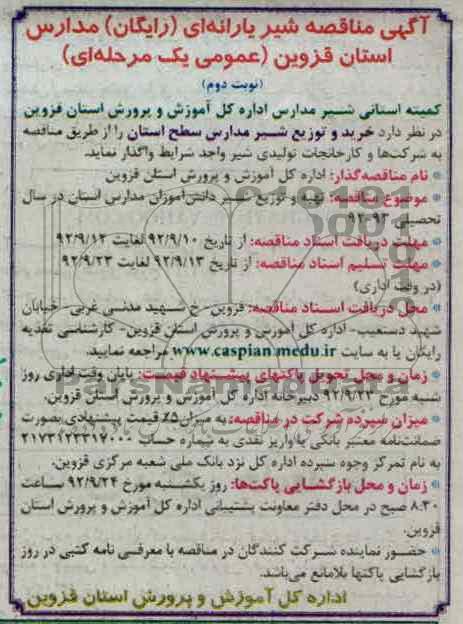 آگهی مناقصه شیر یارانه‌ای (رایگان) مدارس
استان قزوین (عمومی یک مرحله‌ای)
(نوبت دوم)
کمیته استانی شیر مدارس اداره کل آموزش و پرورش استان قزوین
در نظر دارد خرید و توزیع شیر مدارس سطح استان را از طریق مناقصه
به شرکت‌ها و کارخانجات تولیدی شیر واجد شرایط واگذار نماید.
* نام مناقصه‌گذار: اداره کل آموزش و پرورش استان قزوین
* موضوع مناقصه: تهیه و توزیع شیر دانش‌آموزان مدارس استان در سال
تحصیلی ۹۳-۹۲
* مهلت دریافت اسناد مناقصه: از تاریخ ۹۲/۹/۱۰ لغایت ۹۲/۹/۱۲
* مهلت تسلیم اسناد مناقصه: از تاریخ ۹۲/۹/۱۳ لغایت ۹۲/۹/۲۳
(در وقت اداری)
* محل دریافت اسناد مناقصه: قزوین- خ شهید مدنی غربی- خیابان
شهید دستغیب- اداره کل آموزش و پرورش استان قزوین- کارشناسی تغذیه
رایگان یا به سایت www.caspian.medu.ir مراجعه نمایید.
* زمان و محل تحویل پاکتهای پیشنهاد قیمت: پایان وقت اداری روز
شنبه مورخ ۹۲/۹/۲۳ دبیرخانه اداره کل آموزش و پرورش استان قزوین.
* میزان سپرده شرکت در مناقصه: به میزان ۵٪ قیمت پیشنهادی بصورت
ضمانت‌نامه معتبر بانکی یا واریز نقدی به شماره حساب ۲۱۷۳۱۲۳۳۱۷۰۰۰
به نام تمرکز وجوه سپرده اداره کل نزد بانک ملی شعبه مرکزی قزوین.
* زمان و محل بازگشایی پاکت‌ها: روز یکشنبه مورخ ۹۲/۹/۲۴ ساعت
۸:۳۰ صبح در محل دفتر معاونت پشتیبانی اداره کل آموزش و پرورش استان
قزوین.
* حضور نماینده شرکت کنندگان در مناقصه با معرفی نامه کتبی در روز
بازگشایی پاکتها بلامانع می‌باشد.
اداره کل آموزش و پرورش استان قزوین
ParsNamadData